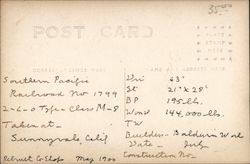 35.00
POST CARD
PLACE
STAMP
HERE
CORRESPONDENCE HERE
NAME AND ADDRESS HERE
Southern Pacific
Railroad No 1799
2-6-0 Type - Class M-8
Taken at -
Sunnyvale, Calif
Retired Co Shops May 1900
Dri 63"
St 21" x 28"
BP 195 lb.
Wond 144,000 lbs.
TW
Builder - Baldwin Work
Date - July
Construction No -